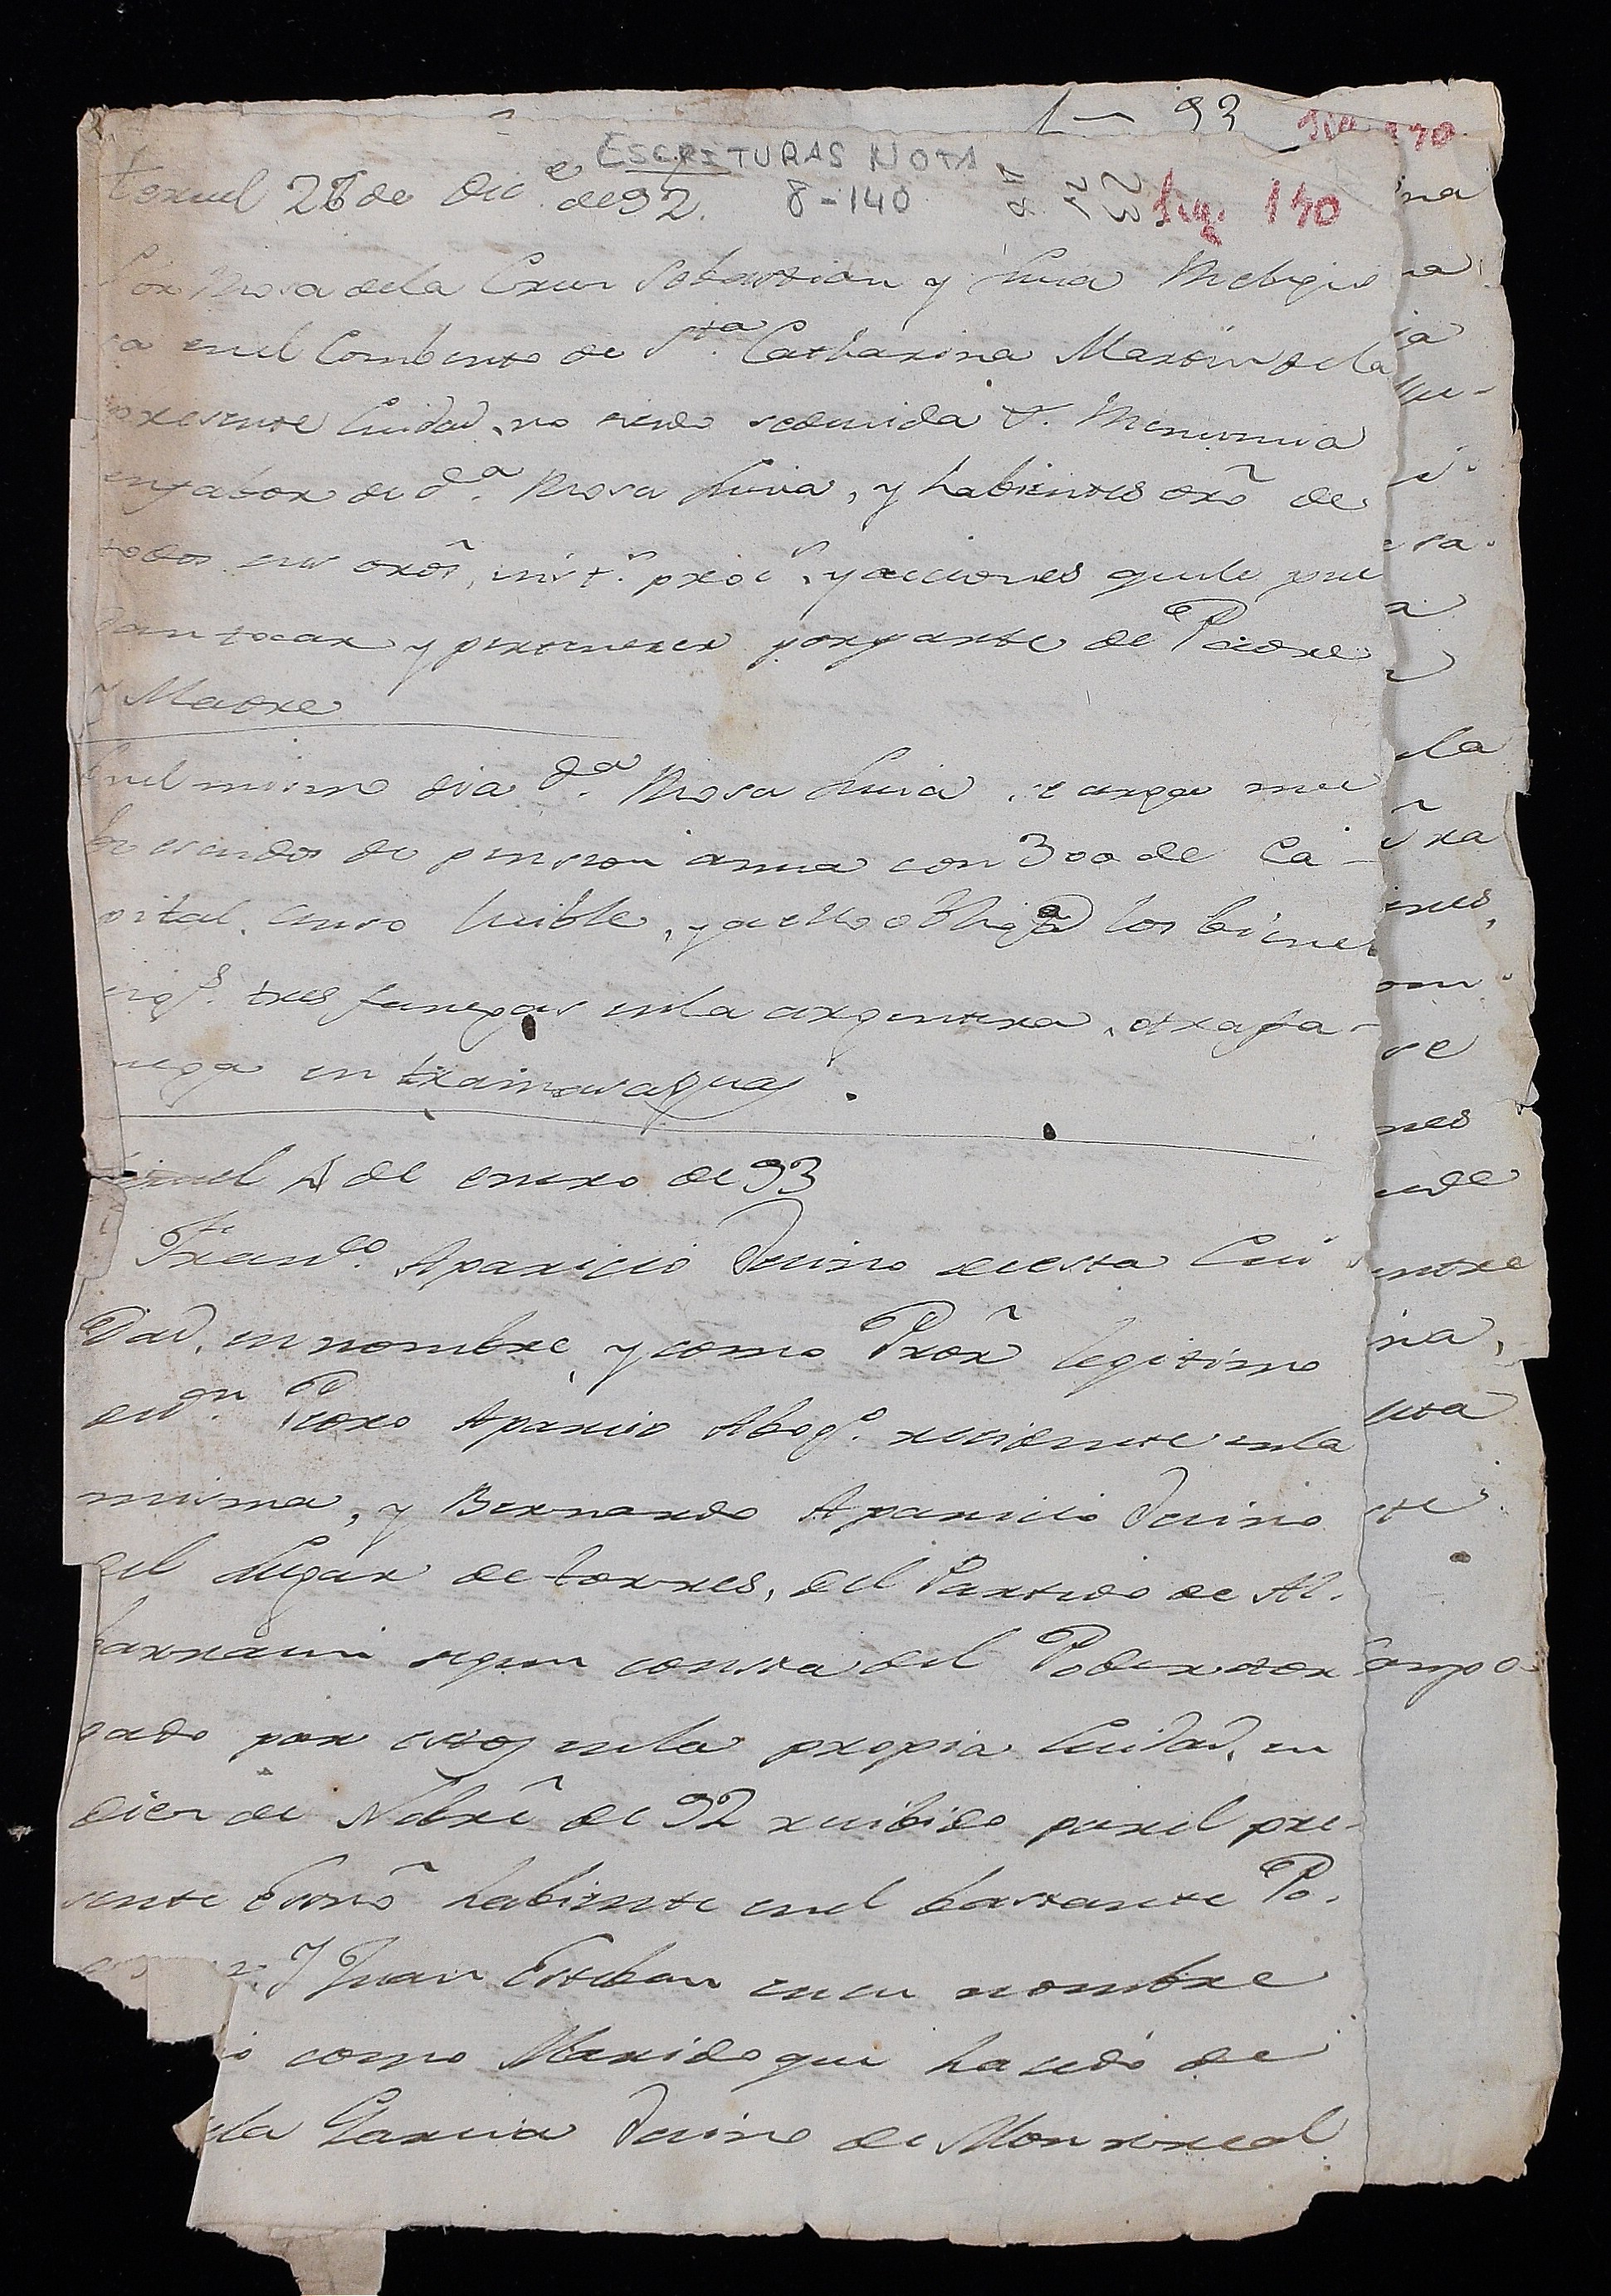 1 — 93
ESCRITURAS NOTA
teruel 26 de Dic.e de 92. 8-140
Lig. 140
Sor Rosa de la Cruz Sebastian y Luia Religio
sa en el Combento de S.ta Catharina Martir de la
presente Ciudad, no siendo seducida &. Renuncia
en fabor de d.a Rosa Luia, y habientes dro de
todos sus dros, inst.s y acciones que le pue
dan tocar y pertenecer por parte de Padre
y Madre
En el mismo dia d.a Rosa Luia, se carga nue
be escudos de pension anua con 300 de Ca-
pital luible, y a ello obliga los bienes
sig.s tres fanegas en la argentera, otra fa-
nega en
teruel de enero de 93
Fran.co Aparicio Vecino de esta Ciu
dad, en nombre, y como Pror legitimo
de d.n Pedro Aparicio Abog.o residente en la
misma, y Bernardo Aparicio Vecino
del Lugar de torres, del Partido de Al-
barracin segun consta del Poder otor
gado por estos en la propia Ciudad, en
diez de Nobre de 92 recibido por el pre-
sente Essno habiente en el bastante Po-
Y Juan Esteban en su nombre
como Marido que ha sido de
Garcia Vecino de Monrreal